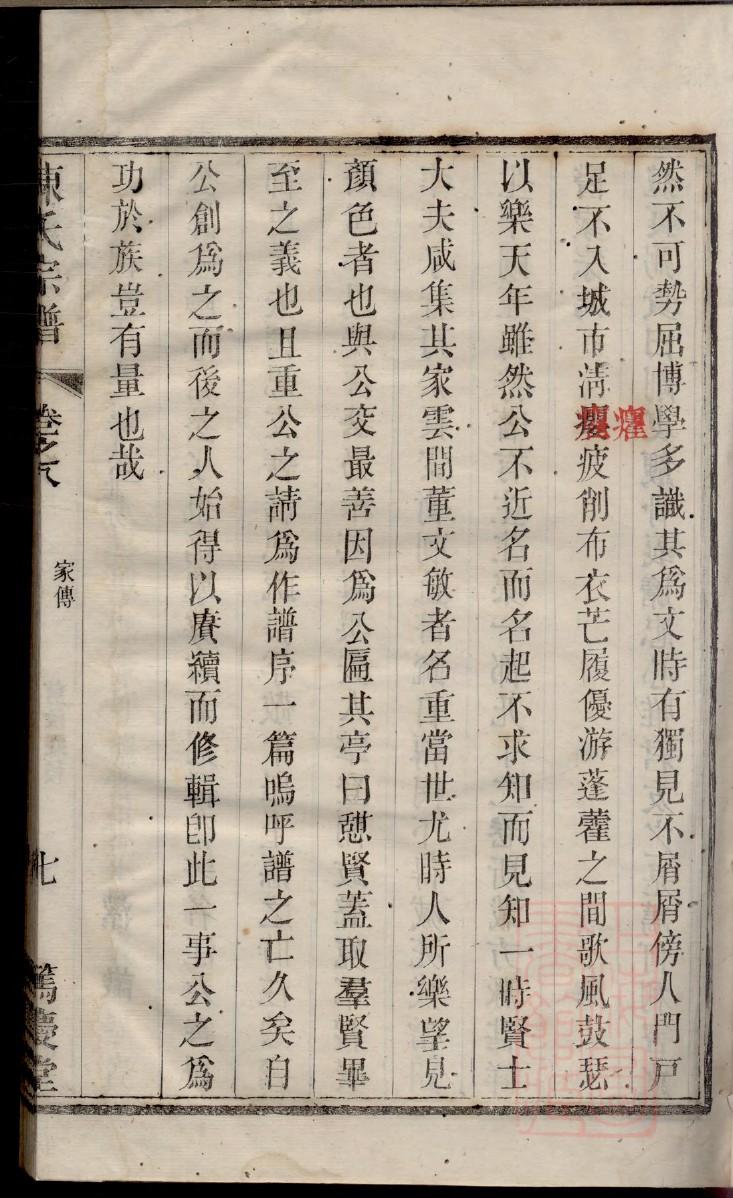 然不可勢屈博學多識其爲文時有獨見不屑屑傍人門戸
足不入城市淸癯疲削布衣芒履優游蓬藋之間歌風鼓瑟
癯
以樂天年雖然公不近名而名起不求知而見知一時賢士
大夫咸集其家雲間董文敏者名重當世尤時人所樂望見
顏色者也與公交最善因爲公匾其亭曰憇賢蓋取羣賢畢
至之義也且重公之請爲作譜序一篇嗚呼譜之亡久矣自
公創爲之而後之人始得以賡續而修輯卽此一事公之爲
功於族豈有量也哉
陳氏宗譜
卷之八
家傳
七
篤慶堂